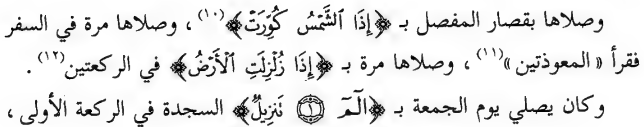 وصلاها بقصار المفصل بـ ﴿إِذَا الشَّمْسُ كُوِّرَتْ﴾(١٠) ، وصلاها مرة في السفر
فقرأ « المعوذتين »(١١) ، وصلاها مرة بـ ﴿إِذَا زُلْزِلَتِ الْأَرْضُ﴾ في الركعتين(١٢) .
وكان يصلي يوم الجمعة بـ ﴿الٓمٓ ۝١ تَنزِيلُ﴾ السجدة في الركعة الأولى ،